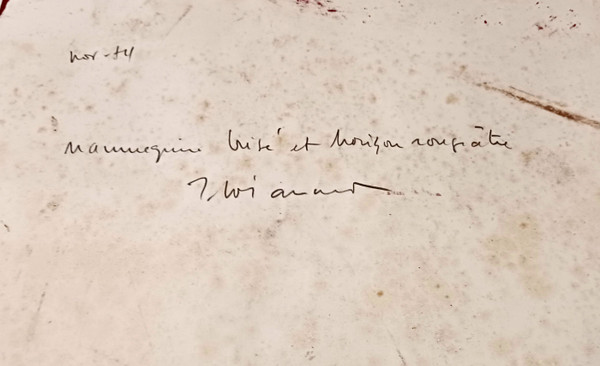 nov-84
mannequin brisé et horizon rougeâtre